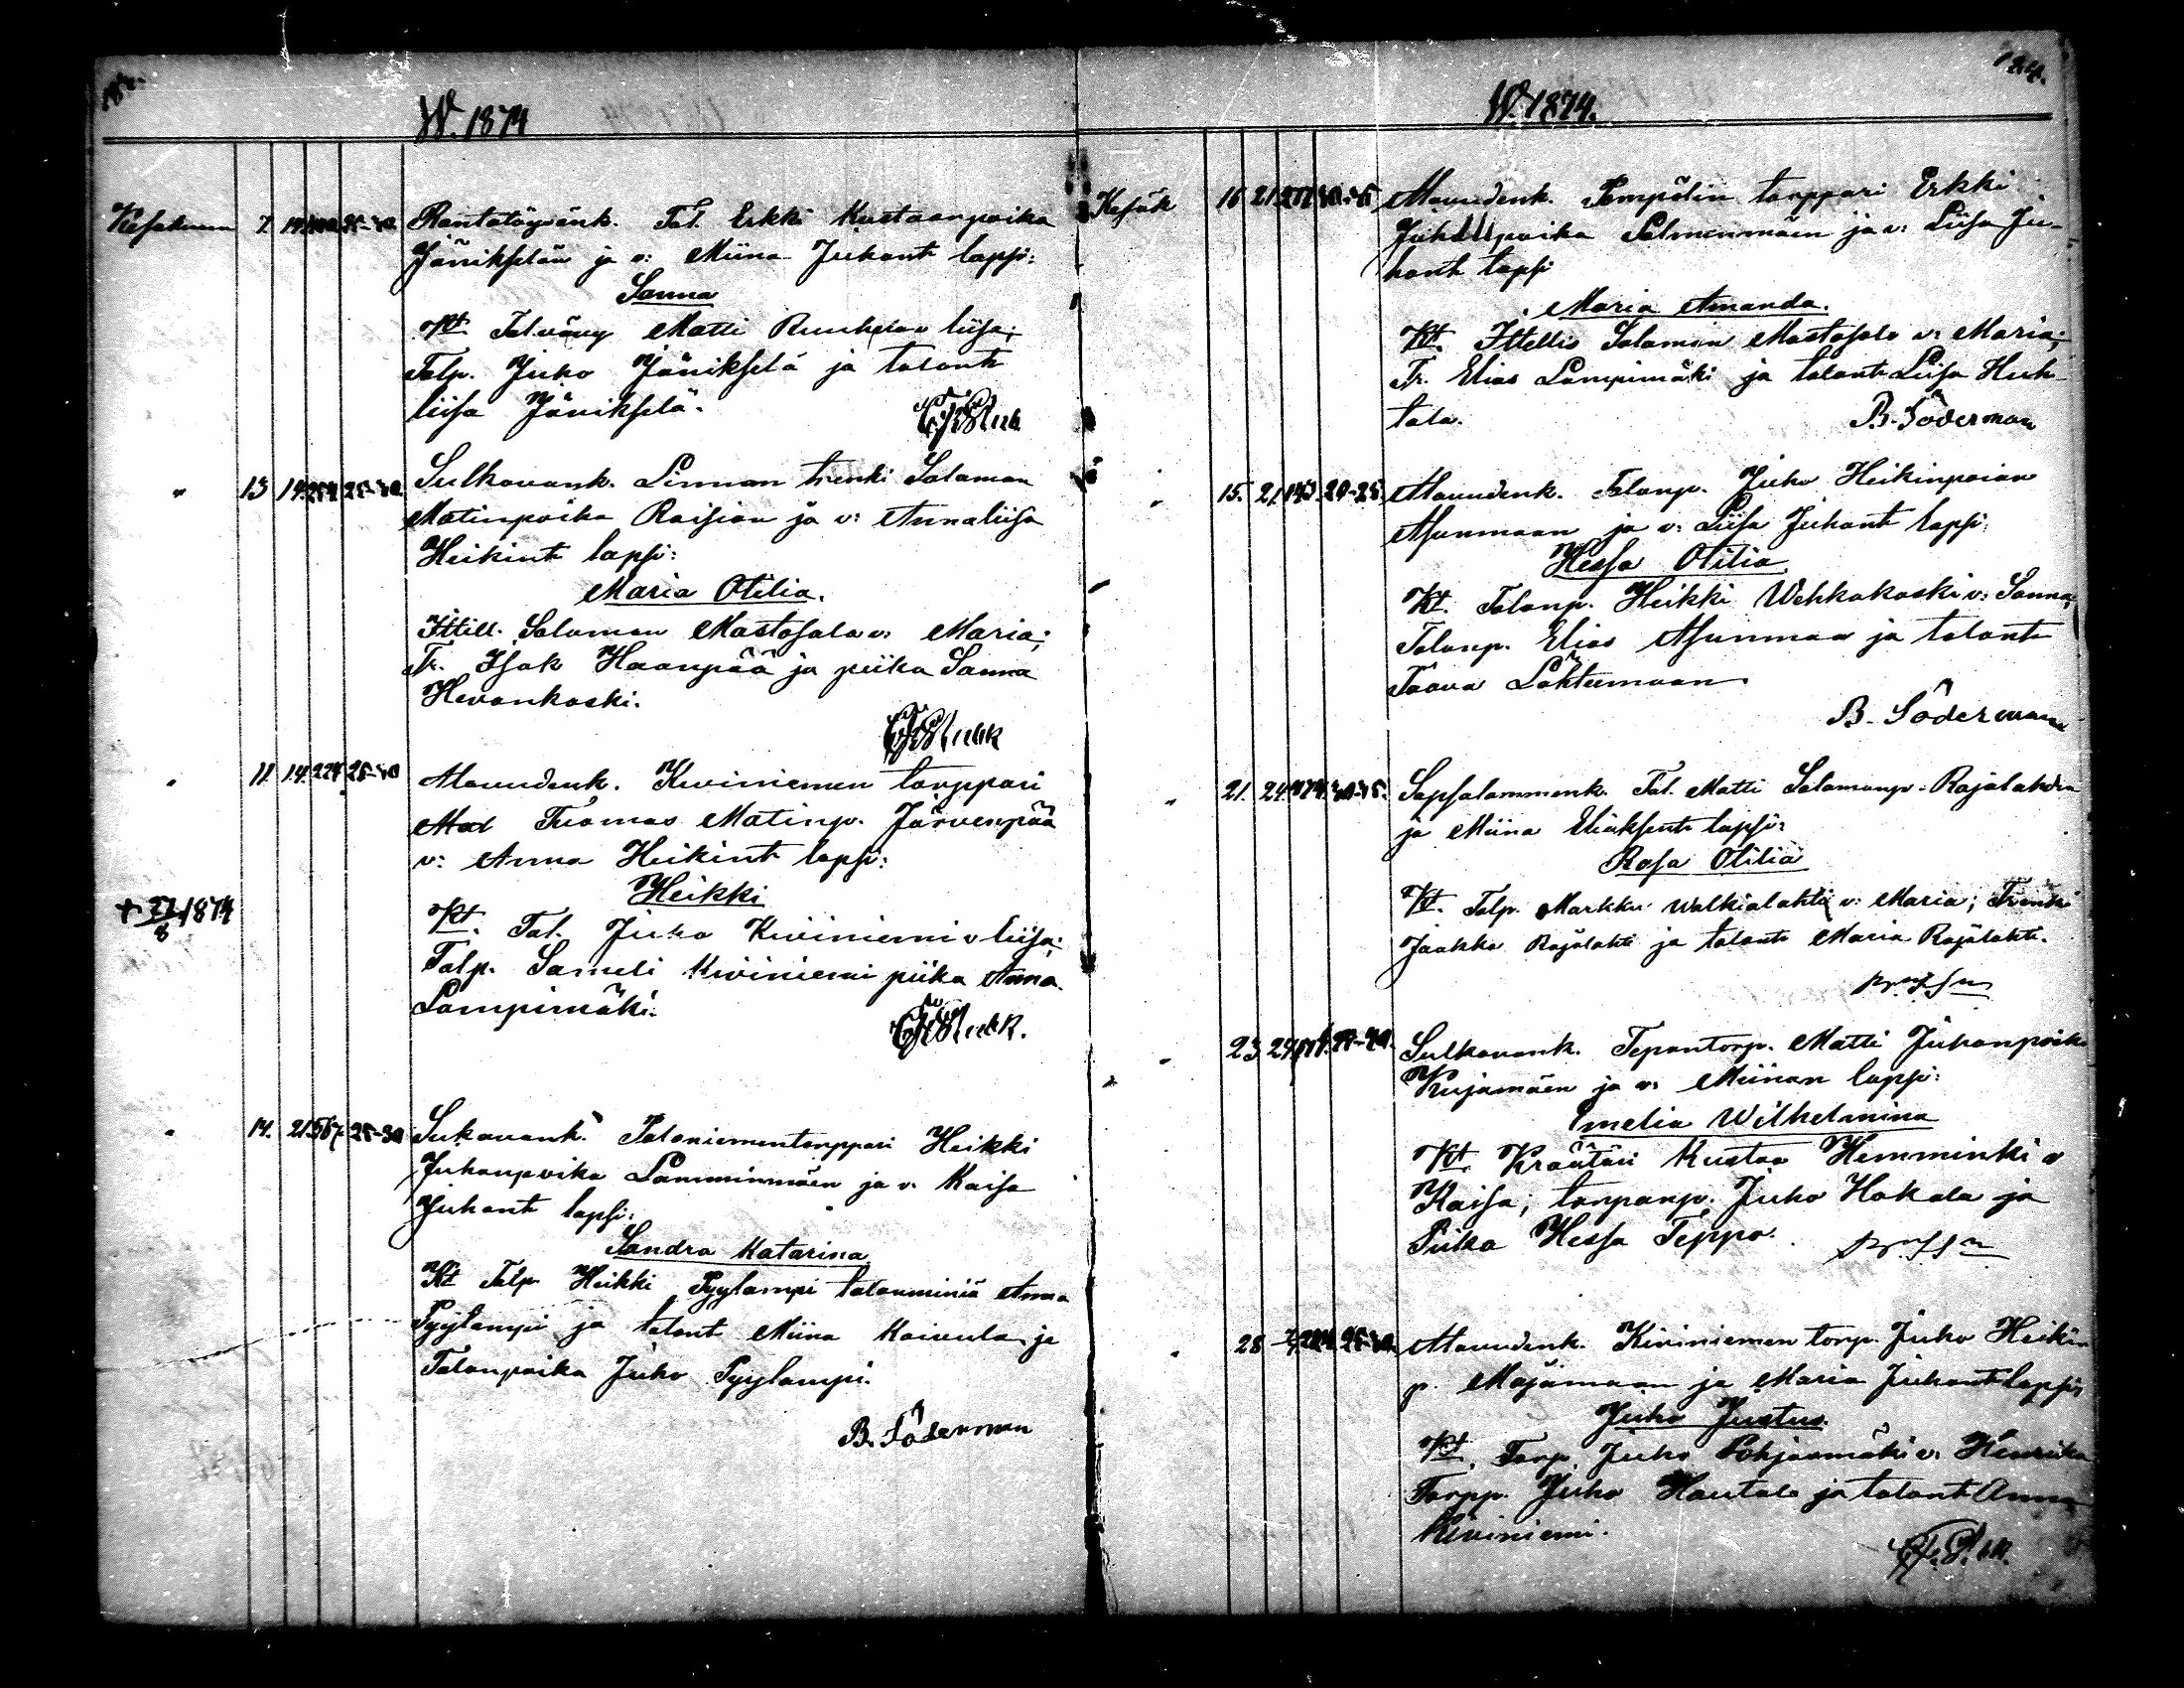 W. 1874
Kesäkuun 7. 14. 25-30 Rantatöysänk. Tal. Erkki Kustaanpoika
Jänikselän ja v: Miina Juhant lapsi:
Sanna
Kt. Tal.vävy Matti liisa;
Talp. Juho Jänikselä ja talont
liisa Jänikselä.
" 13 14. 254 25-30 Sulkavank. Linnan trenki Salamon
Matinpoika Raisian ja v: Annaliisa
Heikint lapsi:
Maria Otilia.
Ittell. Salomon Mastosalo v: Maria;
Tr. Isak Haanpää ja piika Sanna
Hevonkoski.
" 11. 14. 224 25-30 Alavudenk. Kiviniemen torppari
Mat Tuomas Matinp. Järvenpää
v: Anna Heikint lapsi:
Heikki
+ 27/8 1874
Kt. Tal. Juho Kiviniemi v liisa;
Talp. Sameli Kiviniemi piika Anna
Lampimäki.
" 14. 21. 567 25-30 Sukavank. Pataniementorppari Heikki
Juhanpoika Lamminmäen ja v. Kaisa
Juhant lapsi:
Sandra Katarina
Kt Talp Heikki Pyylampi talonminiä Anna
Pyylampi ja talont Miina Koivula ja
Talonpoika Juho Pyylampi.
B. Söderman
124.
W. 1874.
Kesäk 16 21. Alavudenk. Pempälin torppari Erkki
poika Salmenmäen ja v: Liisa Ju-
hant lapsi
Maria Amanda.
Kt. Ittellis Salamon Mastosalo v: Maria;
Tr. Elias Lampimäki ja talont Liisa Huh-
tala.
B. Söderman
" 15. 21. 143. 20-25. Alavudenk. Talonp. Juho Heikinpoian
Asunmaan ja v: Liisa Juhant lapsi:
Hessa Otilia.
Kt. Talonp. Heikki Wehkakoski v: Sanna;
Talonp. Elias Asunmaa ja talont
Taava Lähteenmaan
B. Söderman
" 21. 24. Sapsalammenk. Tal. Matti Salamonp. Rajalahden
ja Miina Eliaksent lapsi:
Rosa Otilia
Kt. Talp. Markku Walkialahti v: Maria; Trenki
Jaakko Rajalahti ja talont Maria Rajalahti.
" 23. 24. Sulkavank. Tepontorp. Matti Juhanpoika
Kujamäen ja v: Miinan lapsi:
Emelia Wilhelmina
Kt. Kräätäri Kustaa Hemminki v
Kaisa; torpanp. Juho Hakala ja
Piika Hessa Teppo.
" 28 Alavudenk. Kiviniemen torp. Juho Heikin
p. Majamaan ja Maria Juhant lapsi:
Juho Justus.
Kt. Torp. Juho Pohjanmäki v. Henrika
Torpp. Juho Hautala ja talont Anna
Kiviniemi.